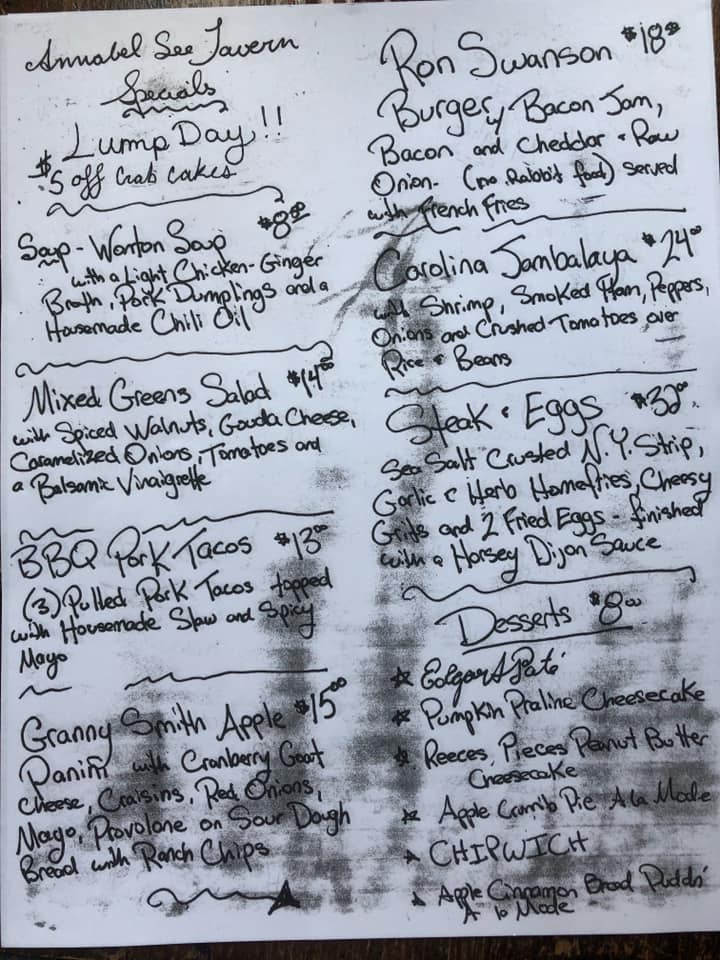 Annabel See Tavern
Specials
Lump Day!!
$5 off Crab Cakes
Soup - Wonton Soup $8.00
with a Light Chicken-Ginger
Broth, Pork Dumplings and a
Housemade Chili Oil
Mixed Greens Salad $14.00
with Spiced Walnuts, Gouda Cheese,
Caramelized Onions, Tomatoes and
a Balsamic Vinaigrette
BBQ Pork Tacos $13.00
(3) Pulled Pork Tacos topped
with Housemade Slaw and Spicy
Mayo
Granny Smith Apple $15.00
Panini with Cranberry Goat
Cheese, Craisins, Red Onions,
Mayo, Provolone on Sour Dough
Bread with Ranch Chips
Ron Swanson $18.00
Burger w/ Bacon Jam,
Bacon and Cheddar & Raw
Onion - (no Rabbit food) served
with French Fries
Carolina Jambalaya $24.00
with Shrimp, Smoked Ham, Peppers,
Onions and Crushed Tomatoes over
Rice & Beans
Steak & Eggs $32.00
Sea Salt Crusted N.Y. Strip,
Garlic & Herb Homefries, Cheesy
Grits and 2 Fried Eggs - finished
with a Horsey Dijon Sauce
Desserts $8.00
Edgar A Paté
Pumpkin Praline Cheesecake
Reeces Pieces Peanut Butter
Cheesecake
Apple Crumb Pie A la Mode
CHIPWICH
Apple Cinnamon Bread Puddn'
A la Mode